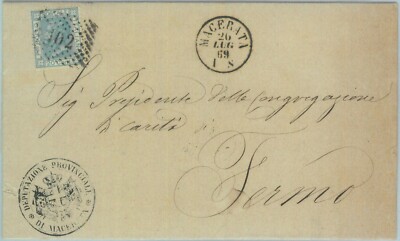 102
MACERATA
20
LUG
69
1 S
Sig Presidente della Congregazione
di carità
Fermo
DEPUTAZIONE PROVINCIALE
DI MACER